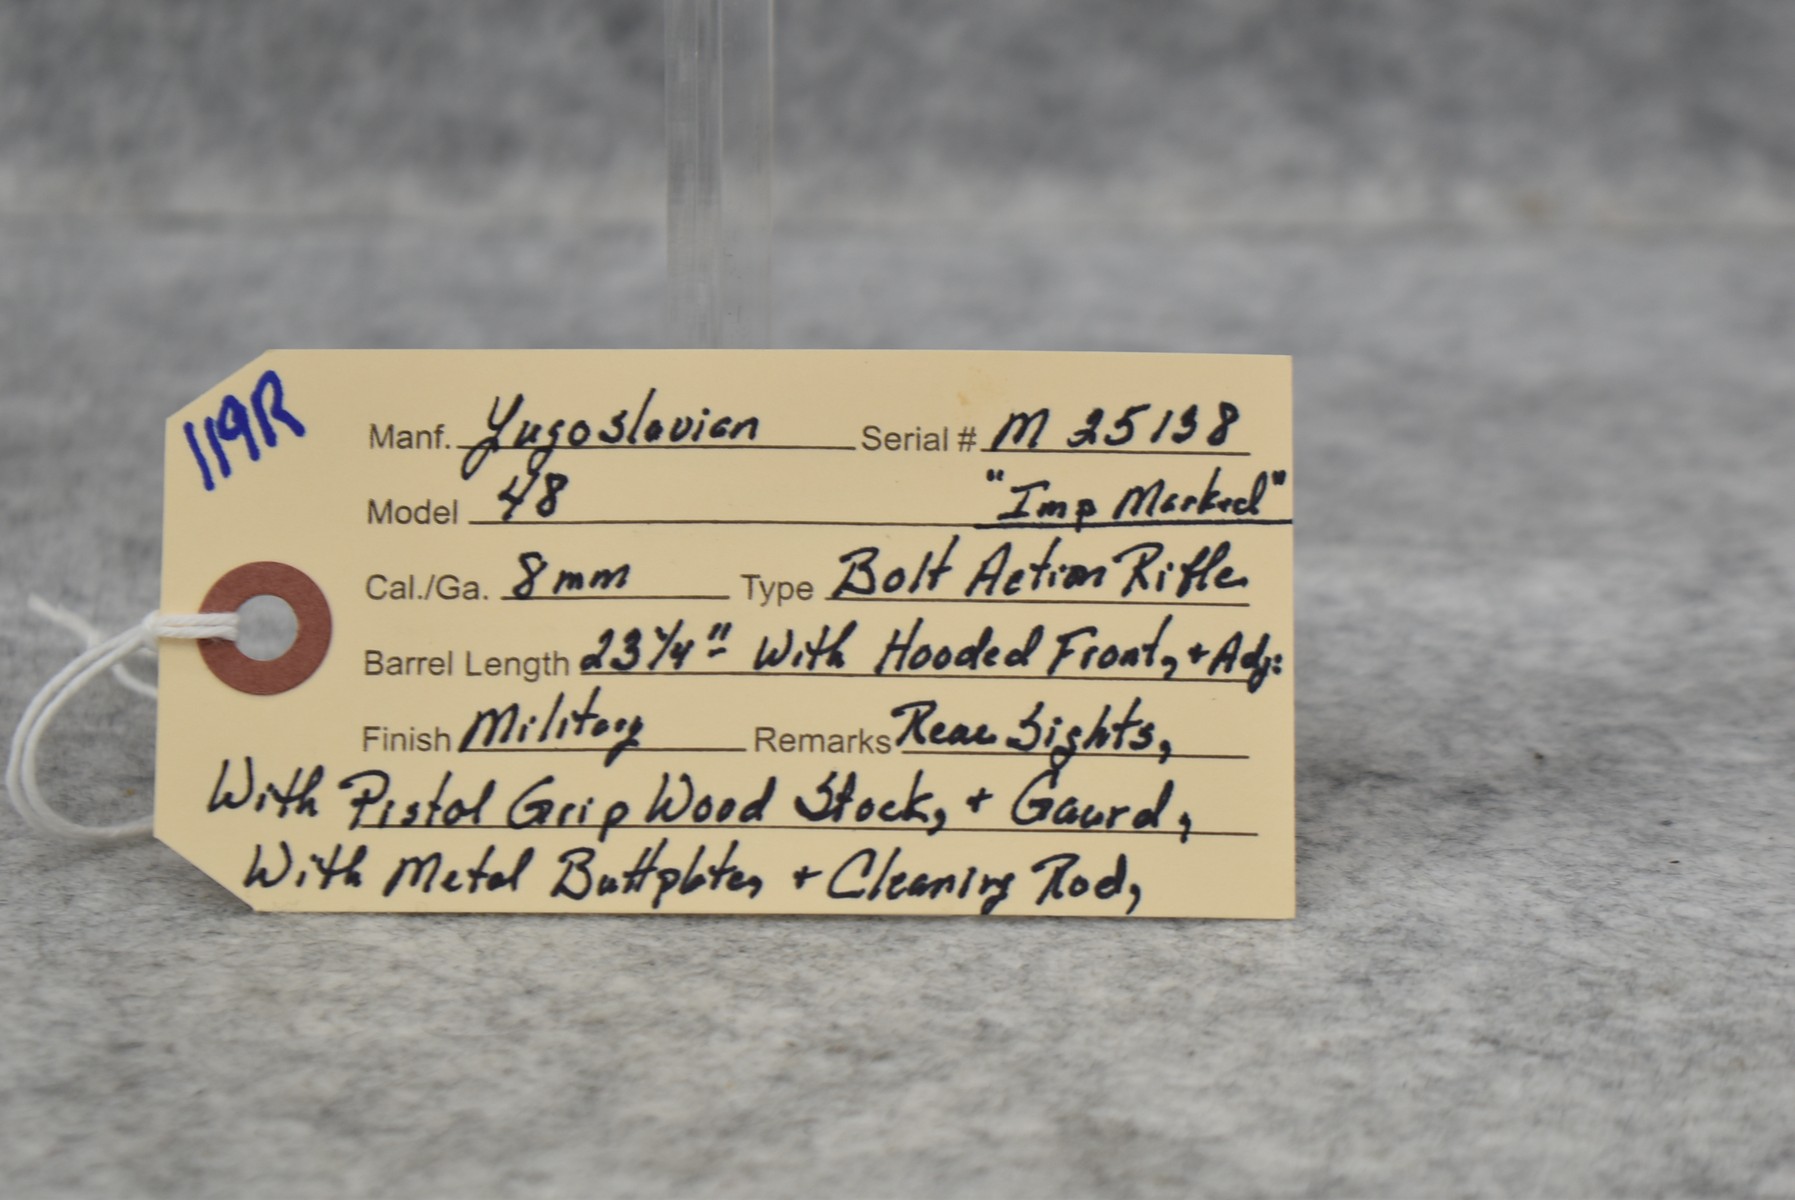 119R
Manf. Yugoslavian Serial # M 25138
Model 48 "Imp Marked"
Cal./Ga. 8mm Type Bolt Action Rifle
Barrel Length 23 1/4" With Hooded Front, + Adj:
Finish Military Remarks Rear Sights,
With Pistol Grip Wood Stock, + Gaurd,
With Metal Buttplate, + Cleaning Rod,